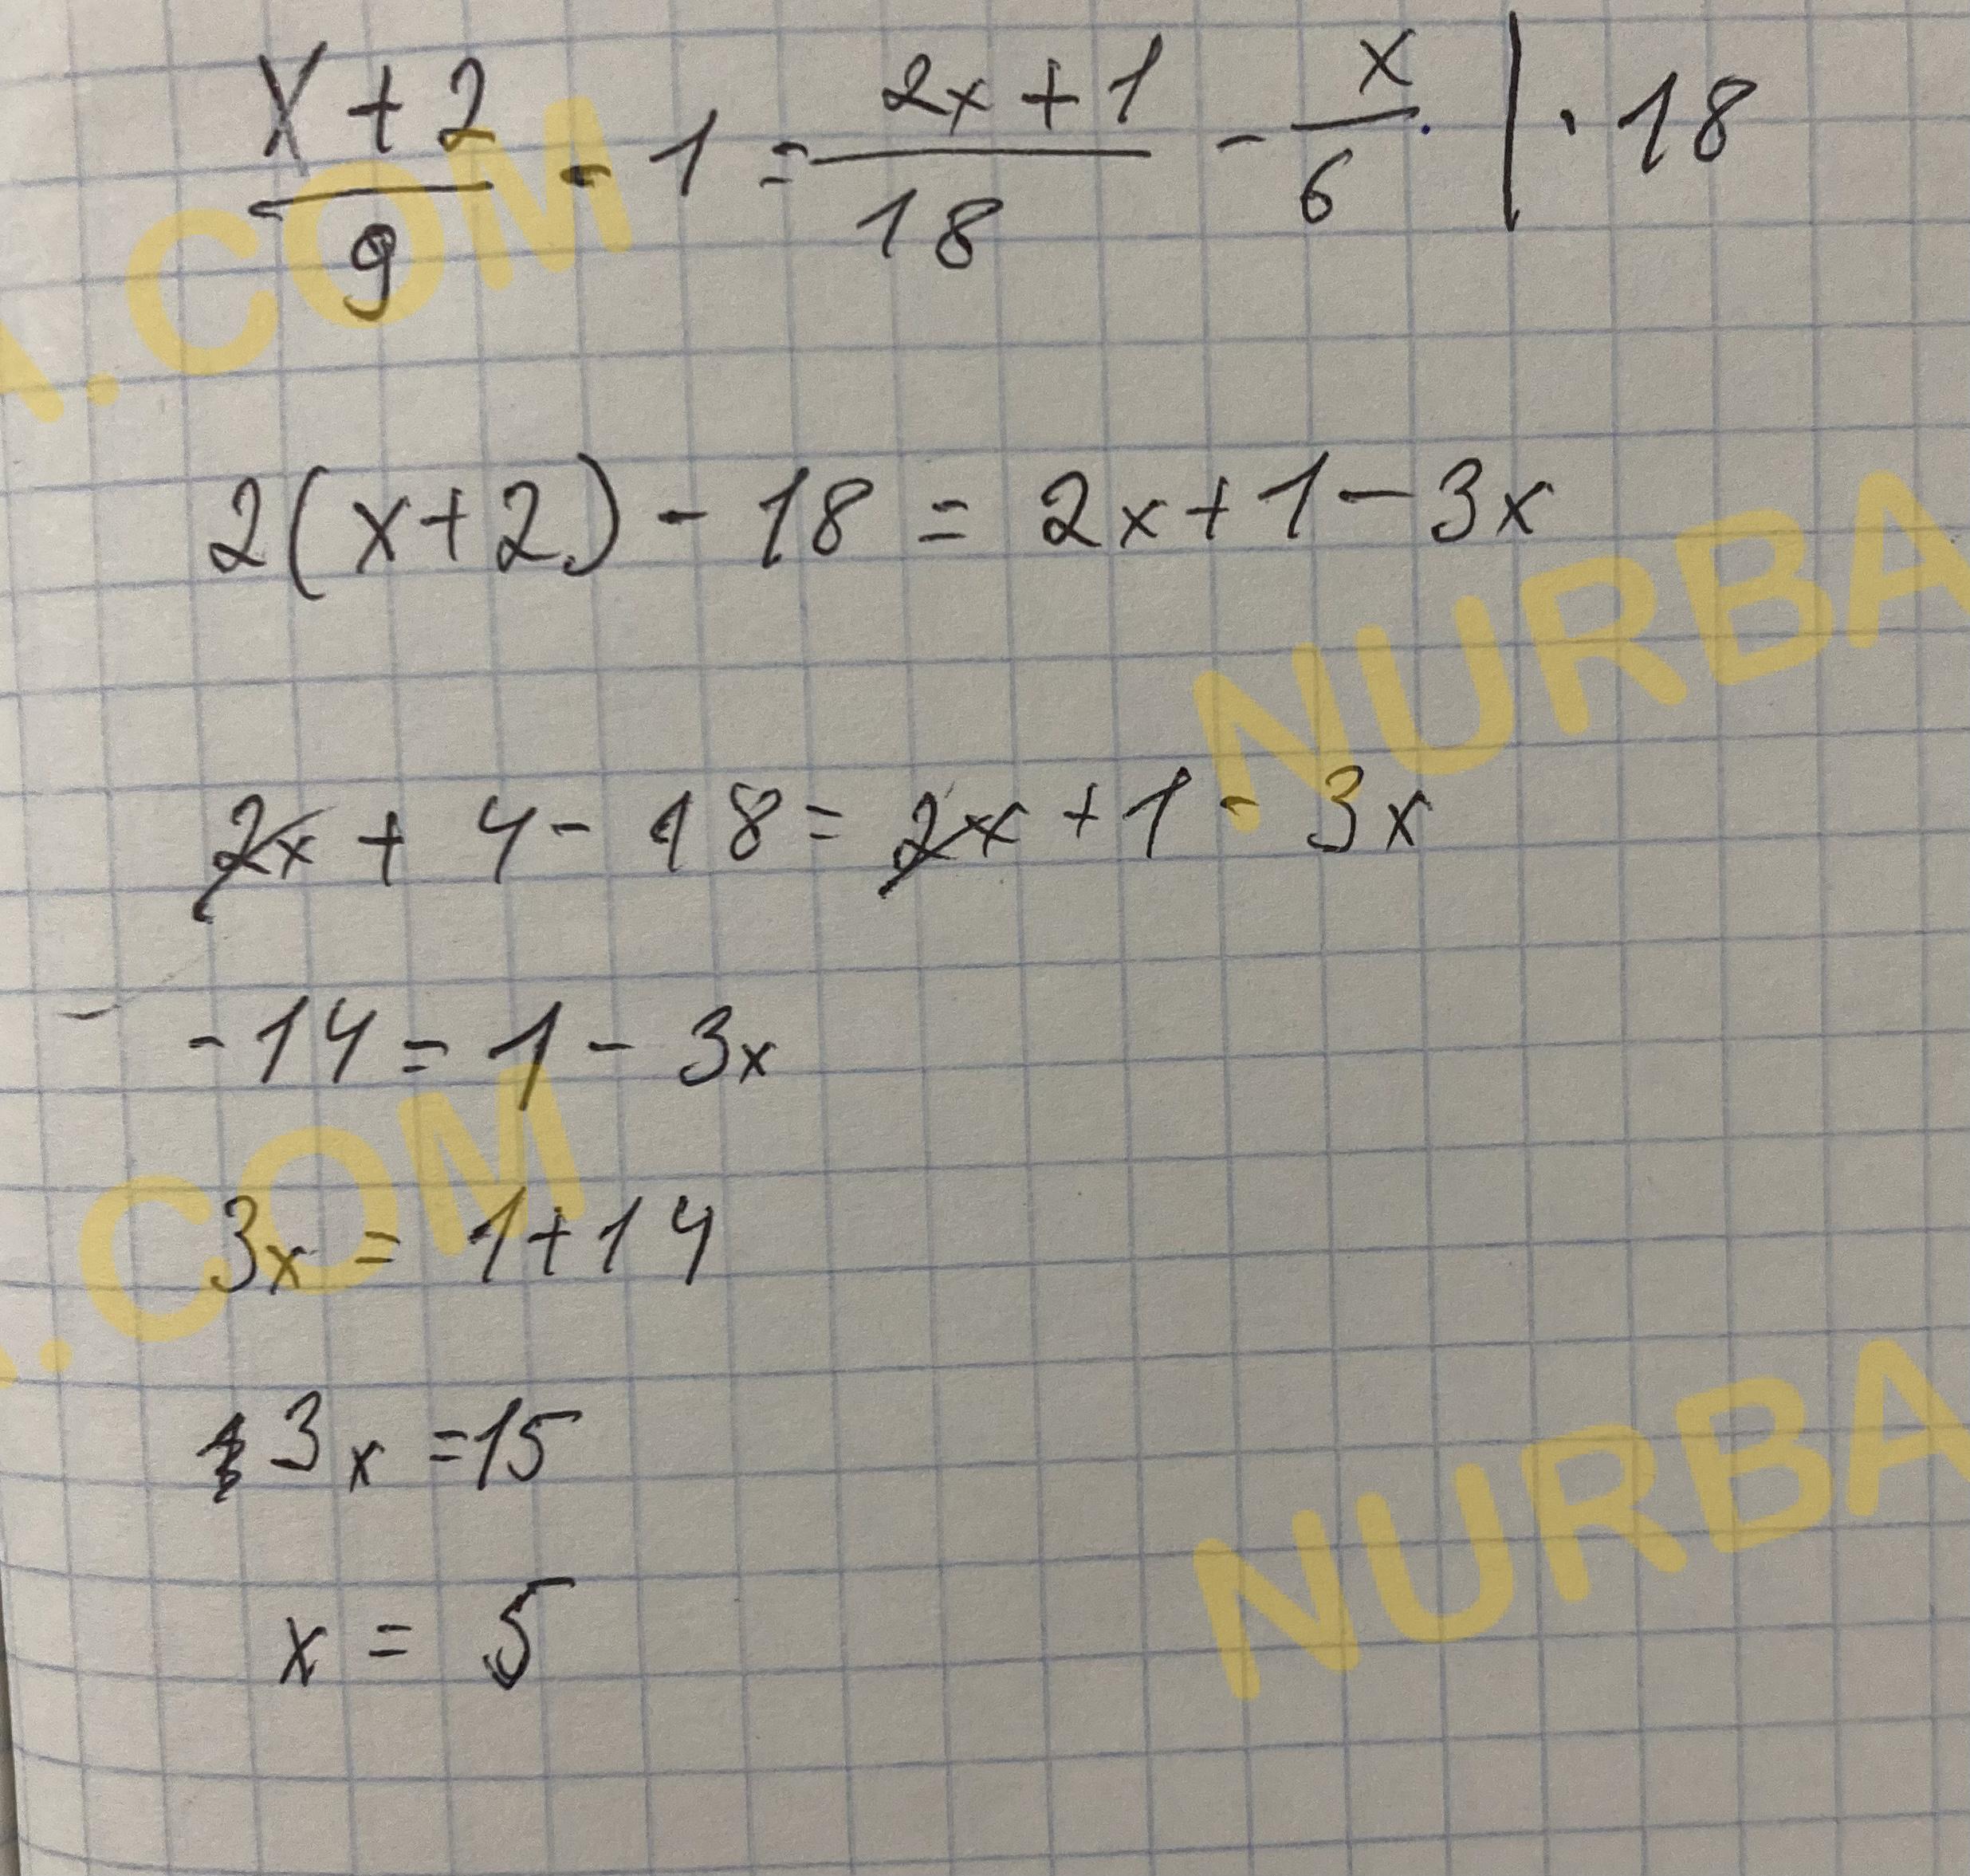 x+2/9 - 1 = 2x+1/18 - x/6 | · 18
2(x+2) - 18 = 2x+1-3x
2x + 4 - 18 = 2x + 1 - 3x
-14 = 1 - 3x
3x = 1+14
3x = 15
x = 5
A.COM
NURBA
.COM
NURBA